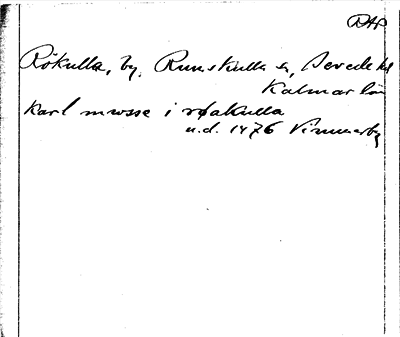 RAP
Rökulla, by, Rumskulla sn, Sevede hd
Kalmar län
karl mwsse i røakulla
u.d. 1476 Vimmerby